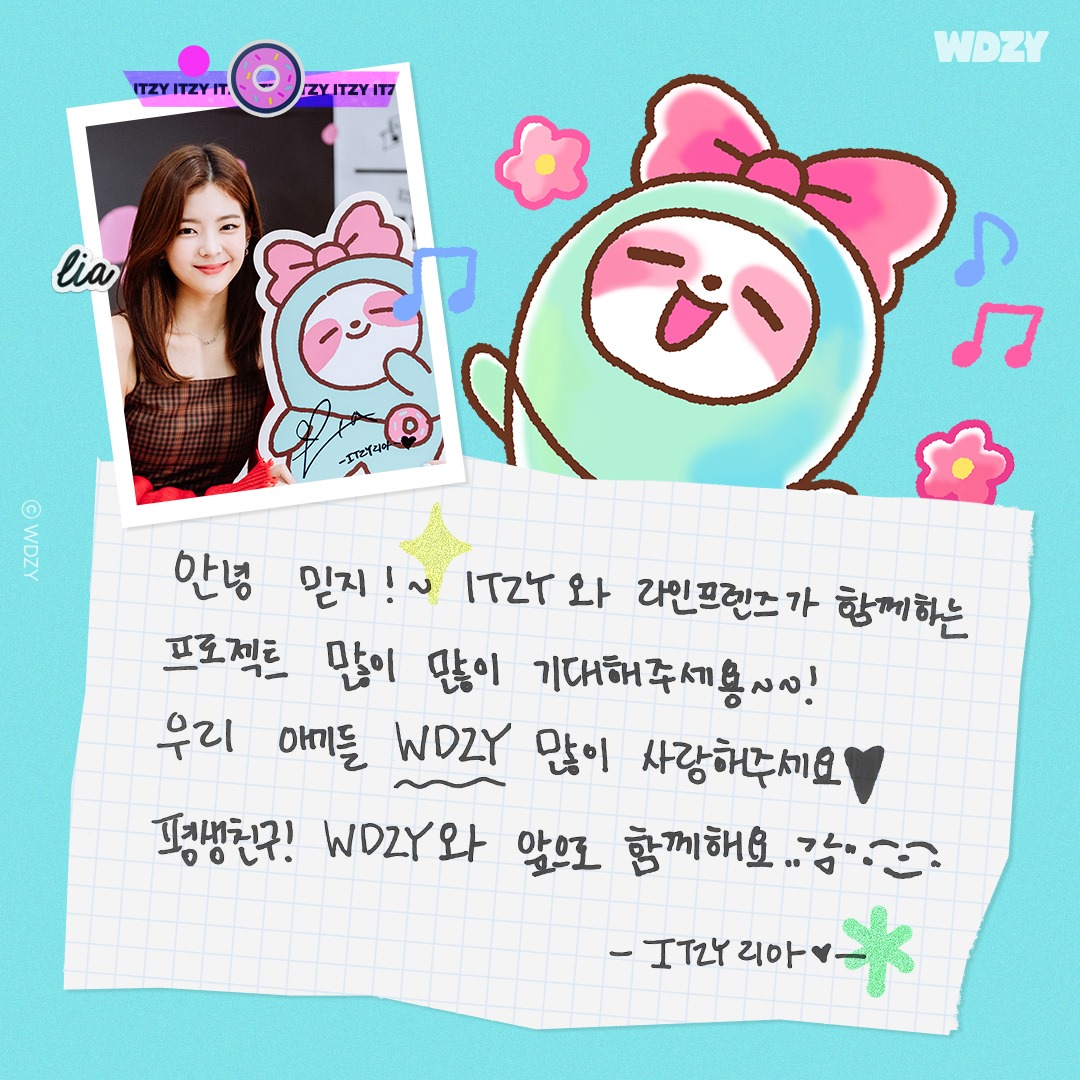 WDZY
ITZY ITZY IT ZY ITZY ITZ
lia
Lia
-ITZY 리아-♥
© WDZY
안녕 믿지!~ ITZY와 라인프렌즈가 함께하는
프로젝트 많이 많이 기대해주세용~~!
우리 애기들 WDZY 많이 사랑해주세요♥
평생친구! WDZY와 앞으로 함께해요..감..
- ITZY 리아♥-